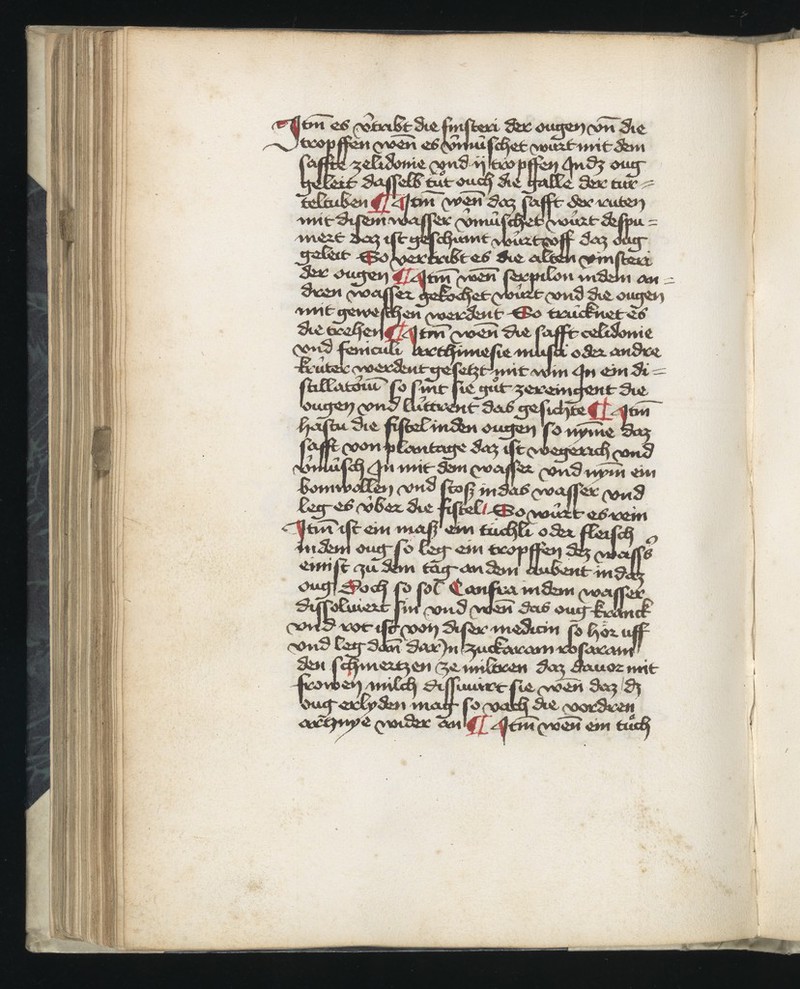 Itm̄ es v̓tribt die finsteri der ougen vn̄ die
tropffen wen̄ es v̓mu̓schet wurt mit dem
saffte zelidonie vnd ij tropffen In dz oug
geleit dasselb tu̓t ouch die galle der tur=
teltuben ¶ Itm̄ wen̄ daz safft der ruten
mit disem wasser v̓mu̓schet wurt despu=
mert daz ist geschumt wurt vff daz oug
geleit So vertribt es die alten vinsteri
der ougen ¶ Itm̄ wen̄ serpilon in dem an=
dren wasser gekochet wurt vnd die ougen
mit geweschen werdent So trucknet es
die trehen ¶ Itm̄ wen̄ die safft celidonie
vnd feniculi arthimesie musa oder andre
kru̓ter werdent gesetzt mit win In ein di=
stillatoiū so sint sie gu̓t ze reingent die
ougen vnd lu̓ttrent das gesichte ¶ Itm̄
hastu die fistel in den ougen so nyme daz
safft von plantage daz ist wegerich vnd
v̓mu̓sch In mit dem wasser vnd nym̄ ein
bomwollen vnd stosz in das wasser vnd
leg es v̓ber die fistel So wu̓rt es rein
Itm̄ ist ein masz ein tu̓chli oder fleisch
in dem oug so leg ein tropffen dez wass͛s
einist zu̓ dem tag an dem aubent in daz
oug Doch so sol Canfra in dem wasser
dissoluiert sin vnd wen̄ das oug kranck
vnd rot ist von diser medicin so hör uff
vnd leg dan̄ dar In zuckaram rosaram
den schmertzen ze miltren daz dauor mit
frowen milch sie wen̄ daz dz
oug erlyden mag so vach die vordren
artznye wider an ¶ Itm̄ wen̄ ein tu̓ch